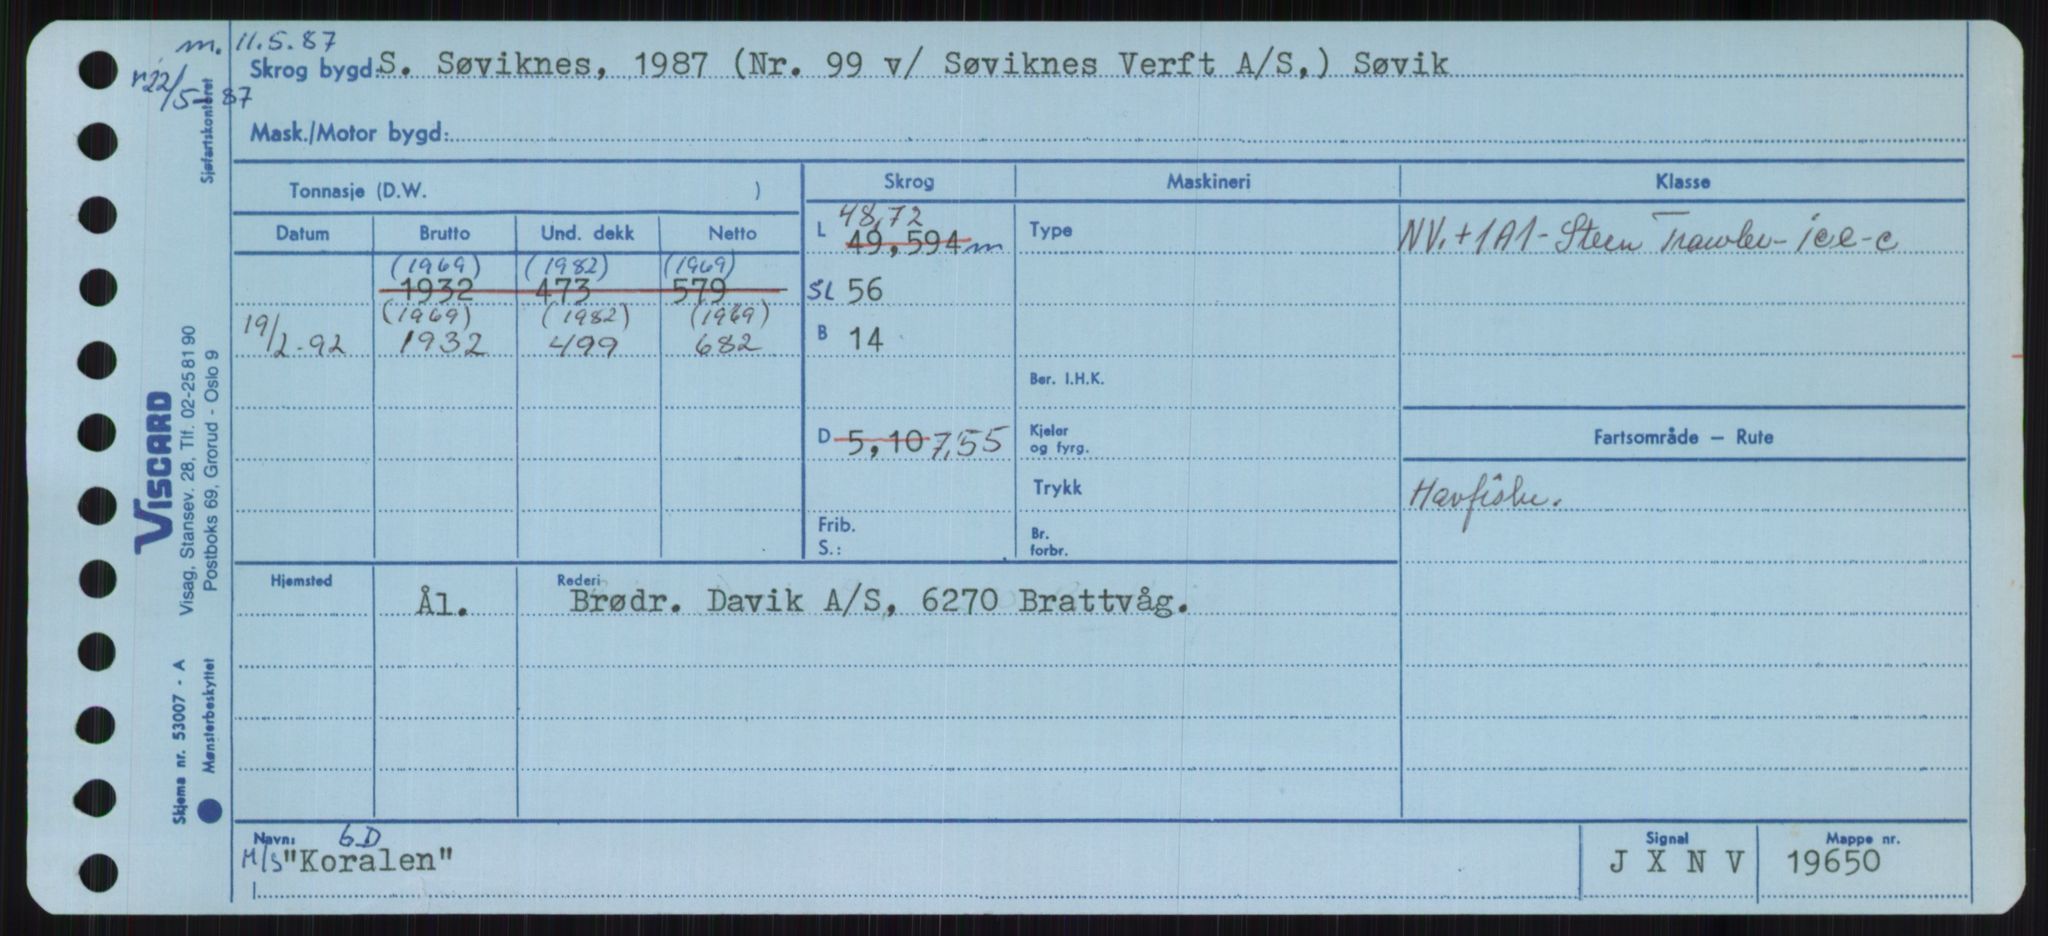 m. 11.5.87
r22/5-87
Skrog bygd: S. Søviknes, 1987 (Nr. 99 v/ Søviknes Verft A/S,) Søvik
Mask./Motor bygd:
Sjøfartskontoret
Tonnasje (D.W. )
Skrog Maskineri Klasse
Datum Brutto Und. dekk Netto
L 48,72
49,594 m
Type
NV. +1A1 - Stern Trawler - ice-c
(1969) (1982) (1969)
1932 473 579
SL 56
(1969) (1982) (1969)
19/2-92 1932 499 682
B 14
Ber. I.H.K.
D 5,10 7,55
Kjelar
og fyrg.
Fartsområde – Rute
Trykk
Havfiske.
Frib.
S.:
Br.
forbr.
Hjemsted
Rederi
Ål. Brødr. Davik A/S, 6270 Brattvåg.
VISCARD
Visag, Stansev. 28, Tlf. 02-25 81 90
Postboks 69, Grorud - Oslo 9
Skjema nr. 53007 - A
Mønsterbeskyttet
Navn: 6D
M/S "Koralen"
Signal
J X N V
Mappe nr.
19650